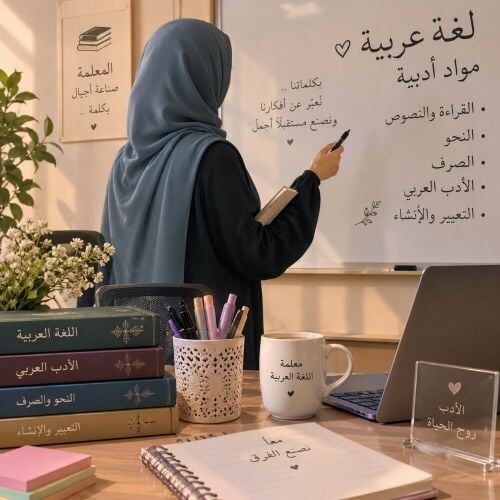 المعلمة
صناعة أجيال
بكلمة ..
لغة عربية
مواد أدبية
• القراءة والنصوص
• النحو
• الصرف
• الأدب العربي
• التعبير والإنشاء
بكلماتنا ..
نُعبّر عن أفكارنا
ونصنع مستقبلًا أجمل
اللغة العربية
الأدب العربي
النحو والصرف
التعبير والإنشاء
معلمة
اللغة العربية
معا
نصنع الفرق
الأدب
روح الحياة